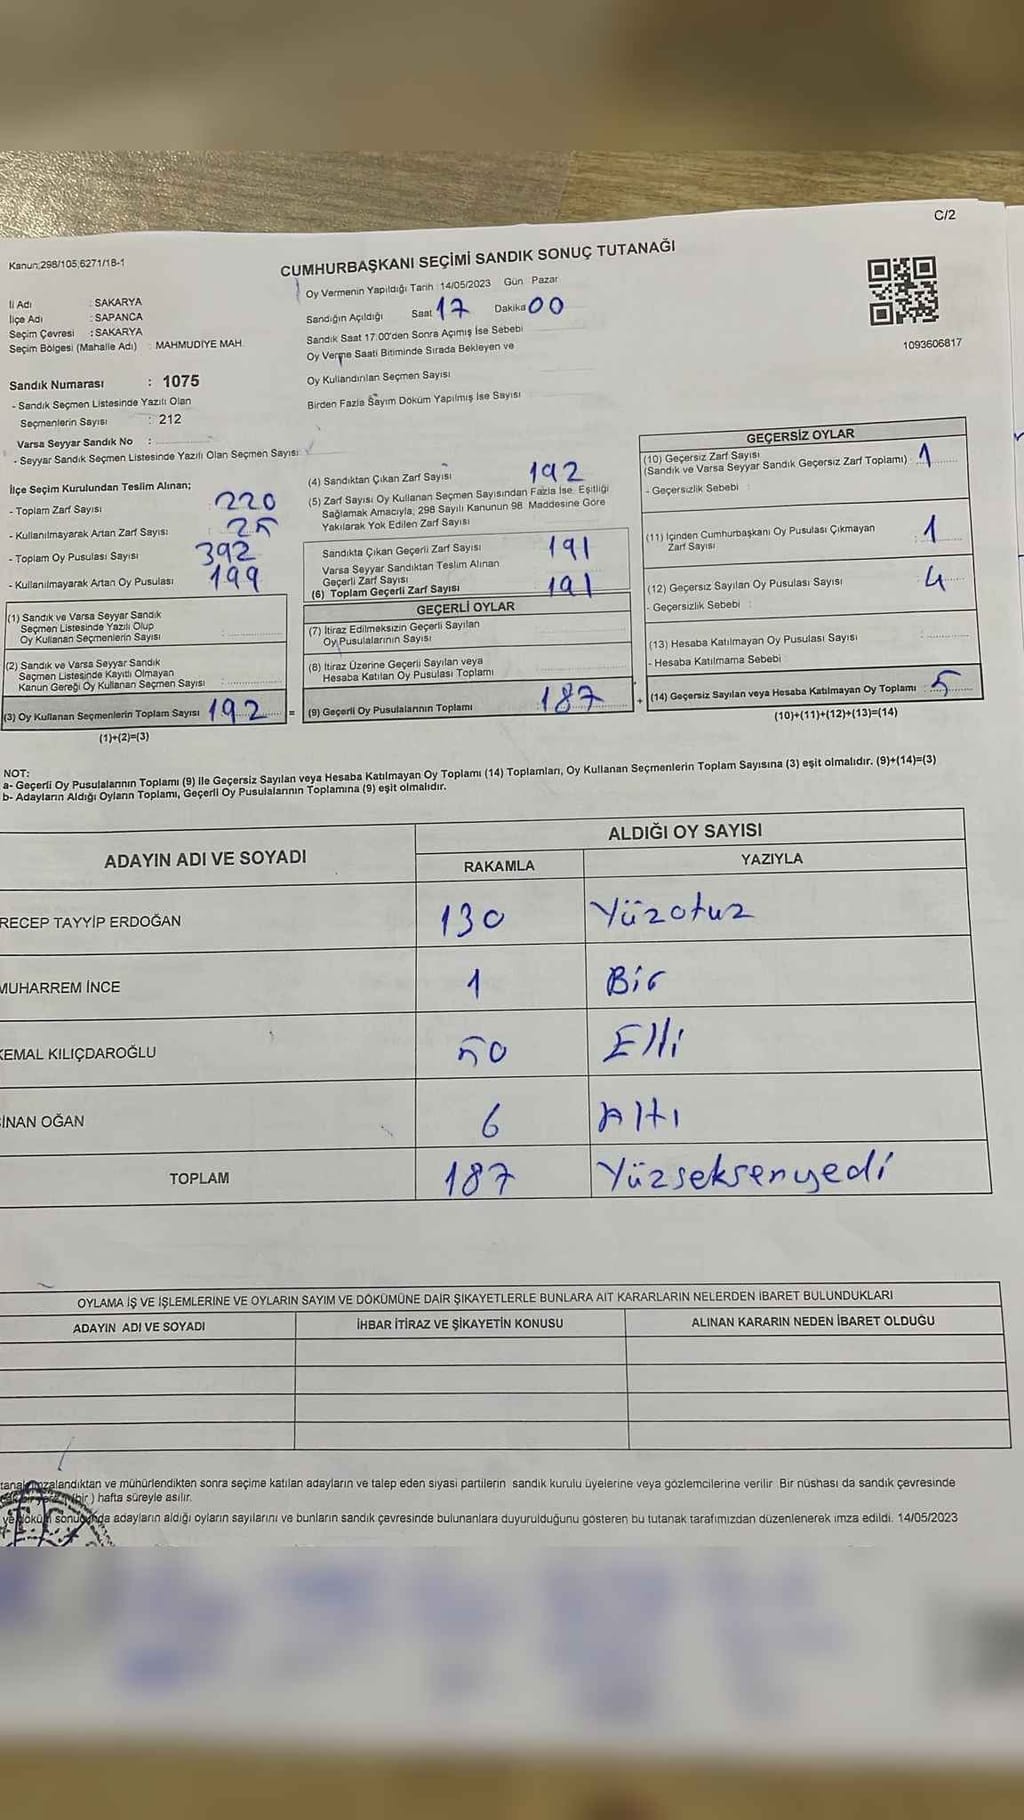 C/2
Kanun:298/105,6271/18-1
CUMHURBAŞKANI SEÇİMİ SANDIK SONUÇ TUTANAĞI
Oy Vermenin Yapıldığı Tarih : 14/05/2023 Gün : Pazar
İl Adı : SAKARYA
İlçe Adı : SAPANCA
Seçim Çevresi : SAKARYA
Seçim Bölgesi (Mahalle Adı) : MAHMUDİYE MAH.
Sandığın Açıldığı Saat 17 Dakika 00
Sandık Saat 17:00'den Sonra Açımış İse Sebebi
Oy Verme Saati Bitiminde Sırada Bekleyen ve
Oy Kullandırılan Seçmen Sayısı
Birden Fazla Sayım Döküm Yapılmış İse Sayısı
1093606817
Sandık Numarası : 1075
- Sandık Seçmen Listesinde Yazılı Olan
Seçmenlerin Sayısı : 212
Varsa Seyyar Sandık No :
- Seyyar Sandık Seçmen Listesinde Yazılı Olan Seçmen Sayısı:
İlçe Seçim Kurulundan Teslim Alınan;
- Toplam Zarf Sayısı : 220
- Kullanılmayarak Artan Zarf Sayısı : 25
- Toplam Oy Pusulası Sayısı : 392
- Kullanılmayarak Artan Oy Pusulası : 199
(1) Sandık ve Varsa Seyyar Sandık
Seçmen Listesinde Yazılı Olup
Oy Kullanan Seçmenlerin Sayısı :
(2) Sandık ve Varsa Seyyar Sandık
Seçmen Listesinde Kayıtlı Olmayan
Kanun Gereği Oy Kullanan Seçmen Sayısı :
(3) Oy Kullanan Seçmenlerin Toplam Sayısı : 192 =
(1)+(2)=(3)
(4) Sandıktan Çıkan Zarf Sayısı 192
(5) Zarf Sayısı Oy Kullanan Seçmen Sayısından Fazla İse, Eşitliği
Sağlamak Amacıyla, 298 Sayılı Kanunun 98. Maddesine Göre
Yakılarak Yok Edilen Zarf Sayısı
Sandıkta Çıkan Geçerli Zarf Sayısı 191
Varsa Seyyar Sandıktan Teslim Alınan
Geçerli Zarf Sayısı
(6) Toplam Geçerli Zarf Sayısı 191
GEÇERLİ OYLAR
(7) İtiraz Edilmeksizin Geçerli Sayılan
Oy Pusulalarının Sayısı
(8) İtiraz Üzerine Geçerli Sayılan veya
Hesaba Katılan Oy Pusulası Toplamı
(9) Geçerli Oy Pusulalarının Toplamı : 187 +
GEÇERSİZ OYLAR
(10) Geçersiz Zarf Sayısı
(Sandık ve Varsa Seyyar Sandık Geçersiz Zarf Toplamı) : 1
- Geçersizlik Sebebi :
(11) İçinden Cumhurbaşkanı Oy Pusulası Çıkmayan
Zarf Sayısı : 1
(12) Geçersiz Sayılan Oy Pusulası Sayısı : 4
- Geçersizlik Sebebi :
(13) Hesaba Katılmayan Oy Pusulası Sayısı :
- Hesaba Katılmama Sebebi :
(14) Geçersiz Sayılan veya Hesaba Katılmayan Oy Toplamı : 5
(10)+(11)+(12)+(13)=(14)
NOT:
a- Geçerli Oy Pusulalarının Toplamı (9) ile Geçersiz Sayılan veya Hesaba Katılmayan Oy Toplamı (14) Toplamları, Oy Kullanan Seçmenlerin Toplam Sayısına (3) eşit olmalıdır. (9)+(14)=(3)
b- Adayların Aldığı Oyların Toplamı, Geçerli Oy Pusulalarının Toplamına (9) eşit olmalıdır.
ADAYIN ADI VE SOYADI ALDIĞI OY SAYISI
RAKAMLA YAZIYLA
RECEP TAYYİP ERDOĞAN 130 Yüzotuz
MUHARREM İNCE 1 Bir
KEMAL KILIÇDAROĞLU 50 Elli
SİNAN OĞAN 6 Altı
TOPLAM 187 Yüzseksenyedi
OYLAMA İŞ VE İŞLEMLERİNE VE OYLARIN SAYIM VE DÖKÜMÜNE DAİR ŞİKAYETLERLE BUNLARA AİT KARARLARIN NELERDEN İBARET BULUNDUKLARI
ADAYIN ADI VE SOYADI İHBAR İTİRAZ VE ŞİKAYETİN KONUSU ALINAN KARARIN NEDEN İBARET OLDUĞU
imzalandıktan ve mühürlendikten sonra seçime katılan adayların ve talep eden siyasi partilerin sandık kurulu üyelerine veya gözlemcilerine verilir. Bir nüshası da sandık çevresinde
(bir) hafta süreyle asılır.
ve döküm sonucunda adayların aldığı oyların sayılarını ve bunların sandık çevresinde bulunanlara duyurulduğunu gösteren bu tutanak tarafımızdan düzenlenerek imza edildi. 14/05/2023